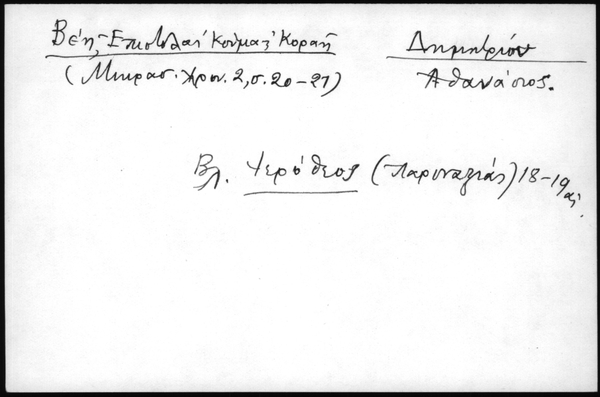 Βέη, Ἐπιστολαὶ Κούμα-Κοραῆ
(Μικρασ. Χρον. 2, σ. 20-21)
Δημητρίου
Ἀθανάσιος.
Βλ. Ἱερόθεος (Παροναξιάς) 18-19 αἰ.